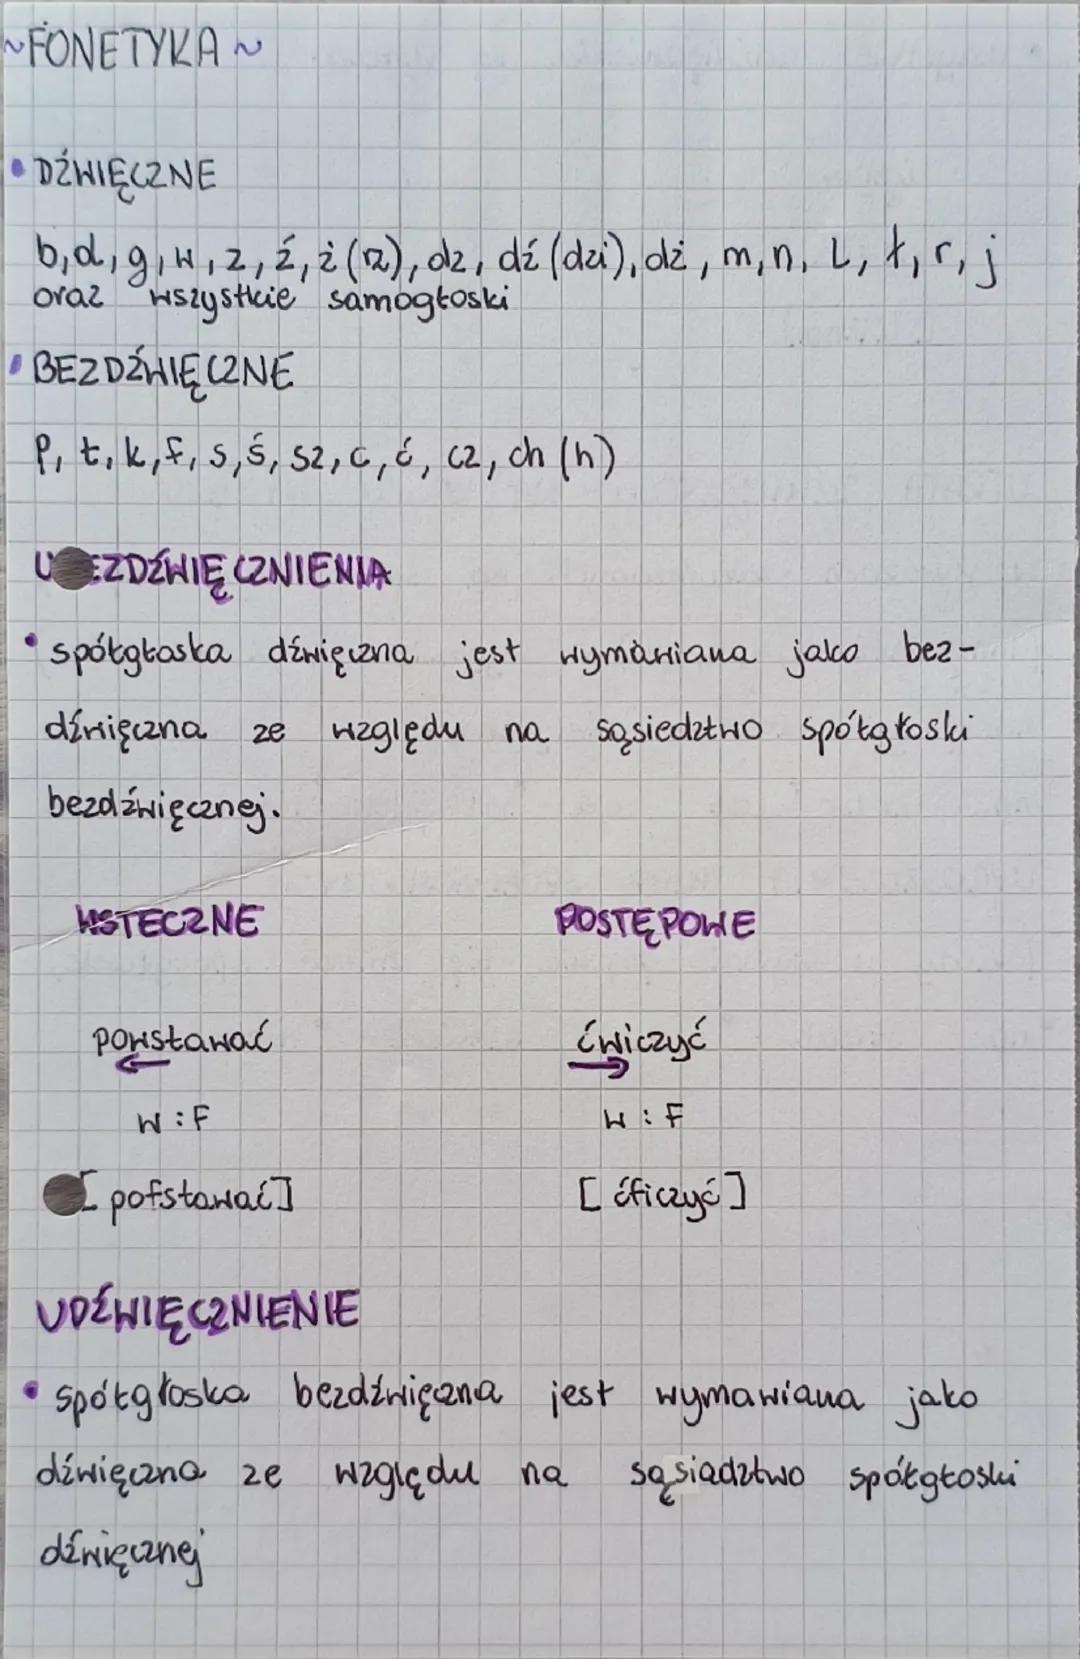 ~FONETYKA~
• DŹWIĘCZNE
b, d, g, w, z, ź, ż (rz), dz, dź (dzi), dż, m, n, l, ł, r, j
oraz wszystkie samogłoski
• BEZDŹWIĘCZNE
p, t, k, f, s, ś, sz, c, ć, cz, ch (h)
U EZDŹWIĘCZNIENIA
• spółgłoska dźwięczna jest wymawiana jako bez-
dźwięczna ze względu na sąsiedztwo spółgłoski
bezdźwięcznej.
WSTECZNE POSTĘPOWE
powstawać ćwiczyć
w : F w : F
[pofstawać] [ćficzyć]
UDŹWIĘCZNIENIE
• spółgłoska bezdźwięczna jest wymawiana jako
dźwięczna ze względu na sąsiadztwo spółgłoski
dźwięcznej